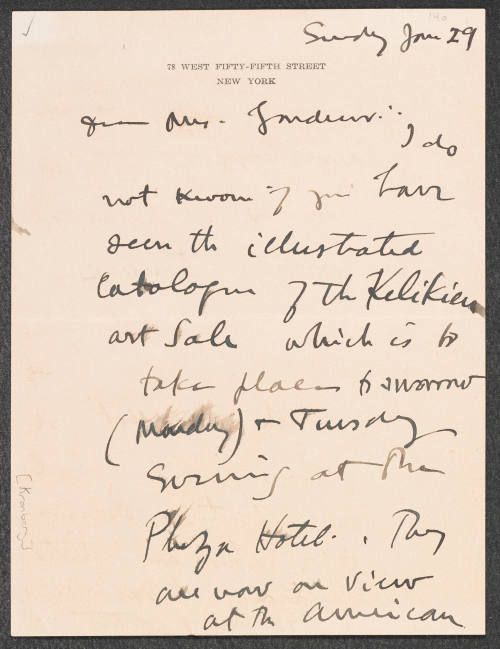 140
Sunday Jan 29
78 WEST FIFTY-FIFTH STREET
NEW YORK
Dear Mrs. Gardner:
I do
not know if you have
seen the illustrated
Catalogue of the Kelikien
art Sale which is to
take place tomorrow
(Monday) + Tuesday
Evening at the
Plaza Hotel. They
are now on view
at the American
[Kronberg]